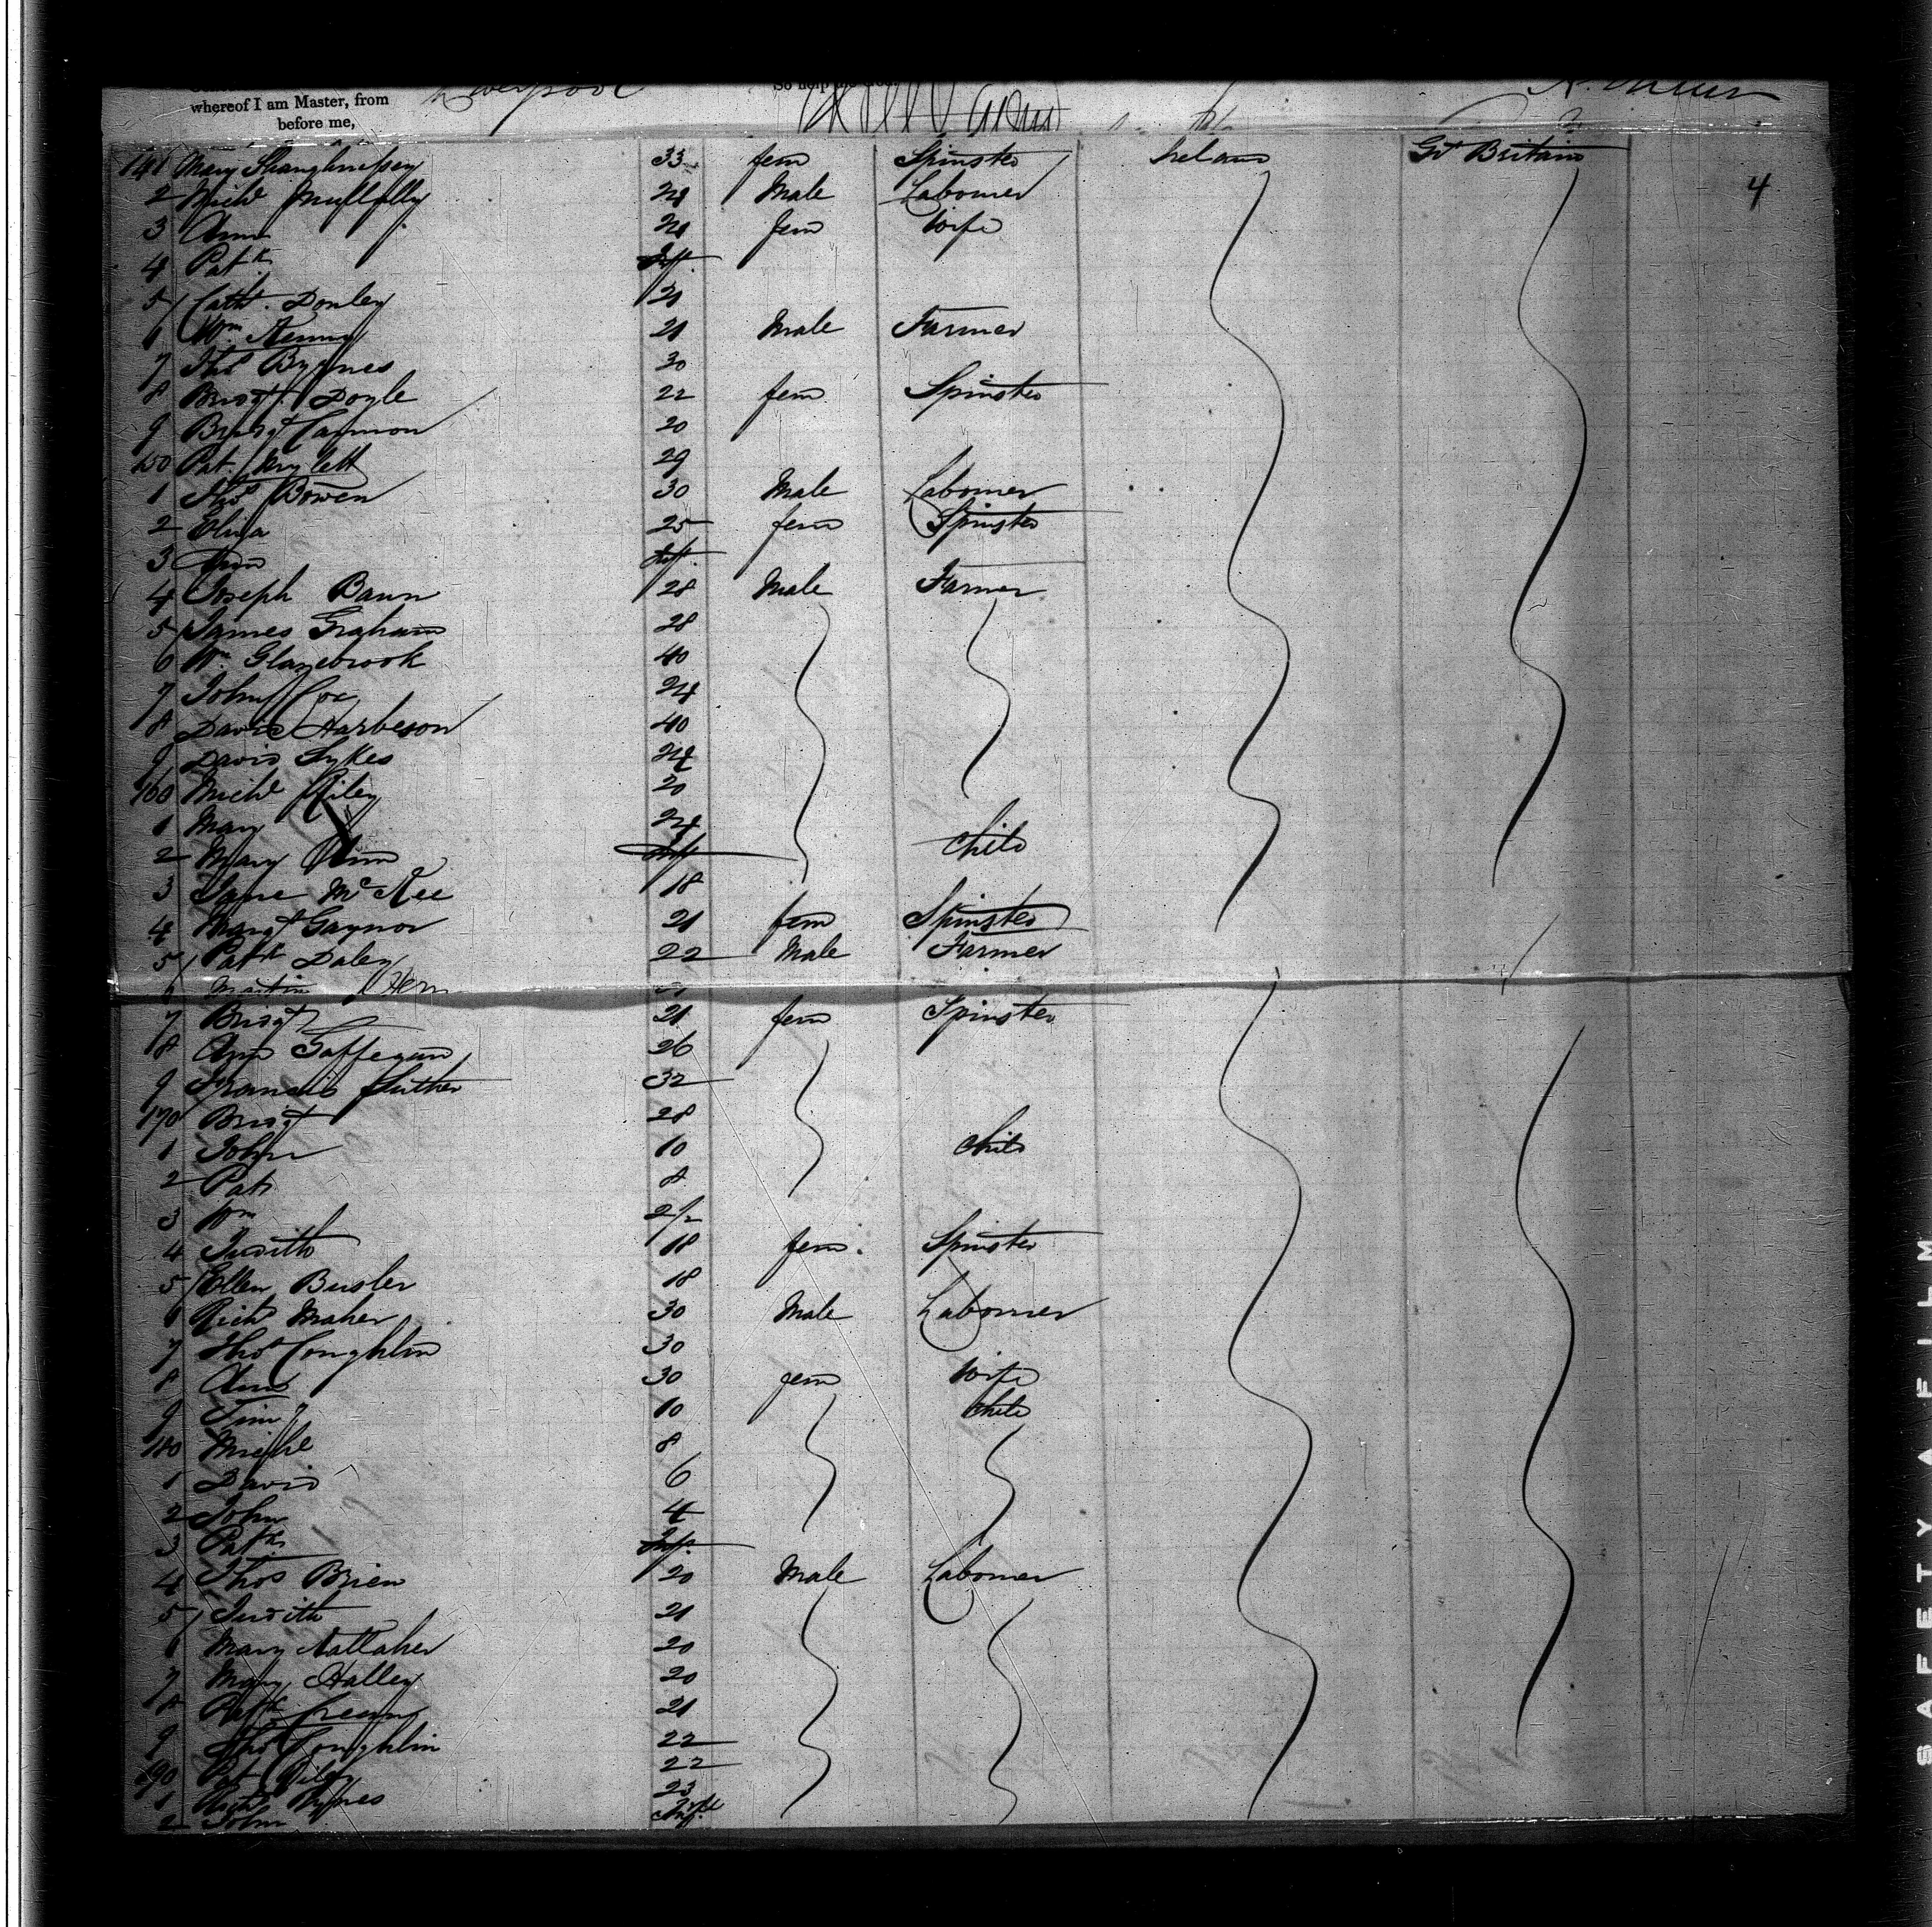 whereof I am Master, from Liverpool
before me,
So help me God
141 Mary Shaughnessey 33 fem Spinster Ireland Gt Britain
4
2 Michl Mullally 24 Male Labourer
3 Ann 21 fem Wife
4 Patk Inft
5 Cath. Donley 21
6 Wm Kenny 21 Male Farmer
7 Thos Byrnes 30
8 Bridgt Doyle 22 fem Spinster
9 Bridgt Cannon 20
150 Pat 29
1 Thos Bowen 30 Male Labourer
2 Eliza 25 fem Spinster
3 Ann Inft
4 Joseph Bann 28 Male Farmer
5 James Graham 28
6 Wm Glazebrook 40
7 John Cox 24
8 David Harbeson 40
9 David Sykes 24
160 Michl Riley 20
1 Mary 24
2 Mary Ann Inft Child
3 Jane McKee 18
4 Margt Gaynor 21 fem Spinster
5 Patk Daley 22 Male Farmer
6 Martin Hern
7 Bridgt 21 fem Spinster
8 Ann Gaffegan 26
9 Francis 32
170 Bridgt 28
1 John 10 Child
2 Pat 8
3 Wm 2/2
4 Judith 18 fem. Spinster
5 Ellen Busler 18
6 Richd Maher 30 Male Labourer
7 Thos Coughlin 30
8 Ann 30 fem Wife
9 Timy 10 Child
180 Michl 8
1 David 6
2 John 4
3 Patk Inft
4 Thos Brien 20 Male Labourer
5 Judith 21
6 Mary Kallaher 20
7 Mary Halley 20
8 Patk 21
9 Thos Coughlin 22
190 Pat Riley 22
1 Richd Byrnes 23
2 John Inft
SAFETY FILM